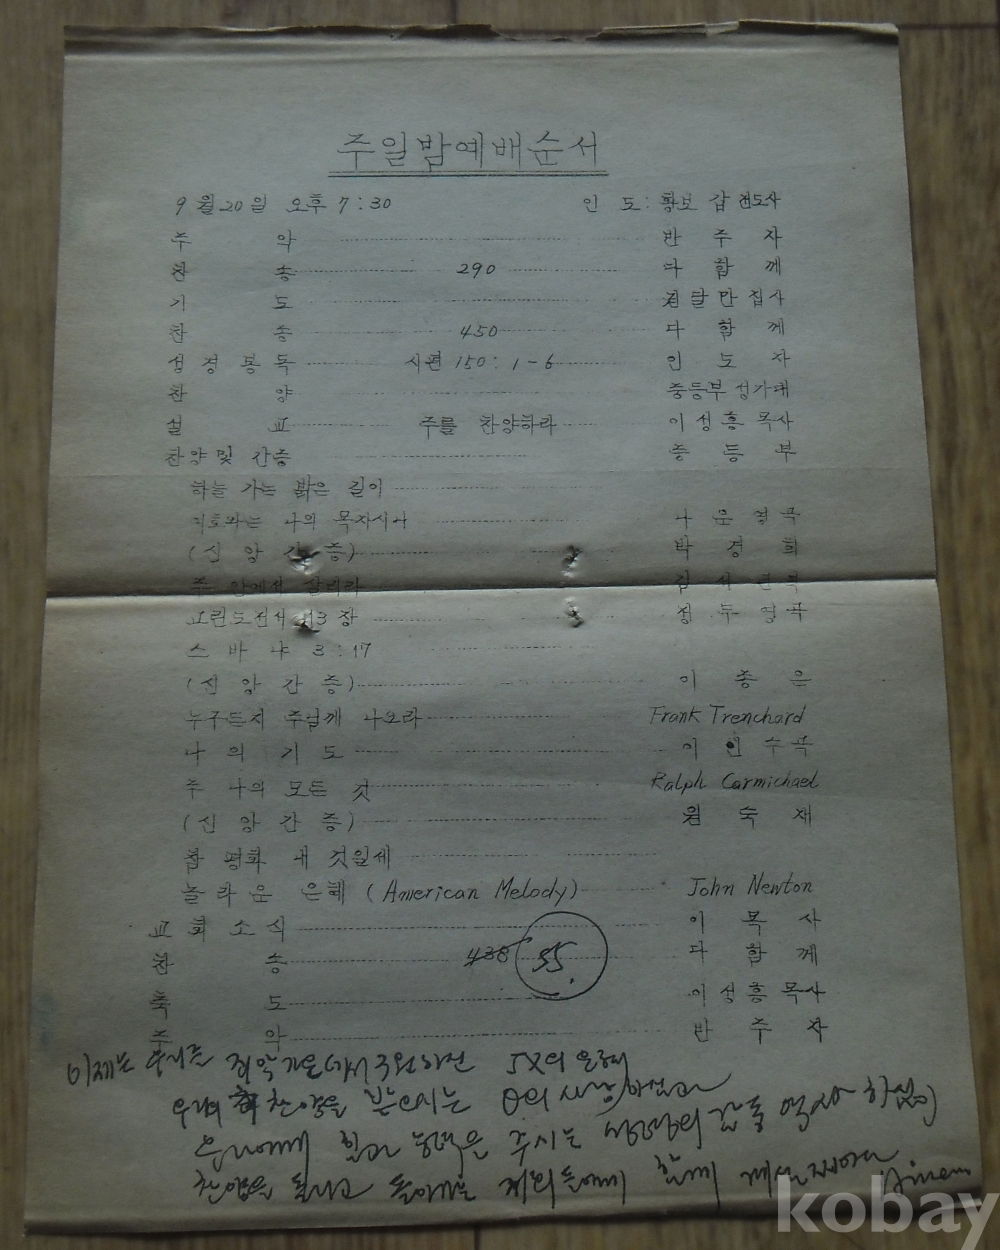 주일밤예배순서
9월20일 오후 7:30 인 도: 황보 갑 전도사
주 악 반 주 자
찬 송 290 다 함 께
기 도 달 만 집사
찬 송 450 다 함 께
성 경 봉 독 시편 150: 1-6 인 도 자
찬 양 중등부 성가대
설 교 주를 찬양하라 이 성 흥 목사
찬양및 간증 중 등 부
하늘 가는 밝은 길이
나의 목자시니 나 운 영 곡
(신 앙 간 증) 박 경 희
주 안에서 살리라
고린도전서 13장 정 두 영 곡
스 바 냐 3:17
(신 앙 간 증) 이 종 은
누구든지 주님께 나오라 Frank Trenchard
나 의 기 도 이 인 수 곡
주 나의 모든 것 Ralph Carmichael
(신 앙 간 증) 원 숙 재
참 평화 내 것일세
놀 라 운 은혜 (American Melody) John Newton
교 회 소 식 이 목 사
찬 송 438 55. 다 함 께
축 도 이 성 흥 목 사
주 악 반 주 자
이제는 우리를 죄악 가운데서 구원하신 은혜
우리의 찬양을 받으시는
우리에게 힘과 능력을 주시는 성령의 감동 역사하심이
찬양을 드리고 돌아가는 함께 Amen
kobay